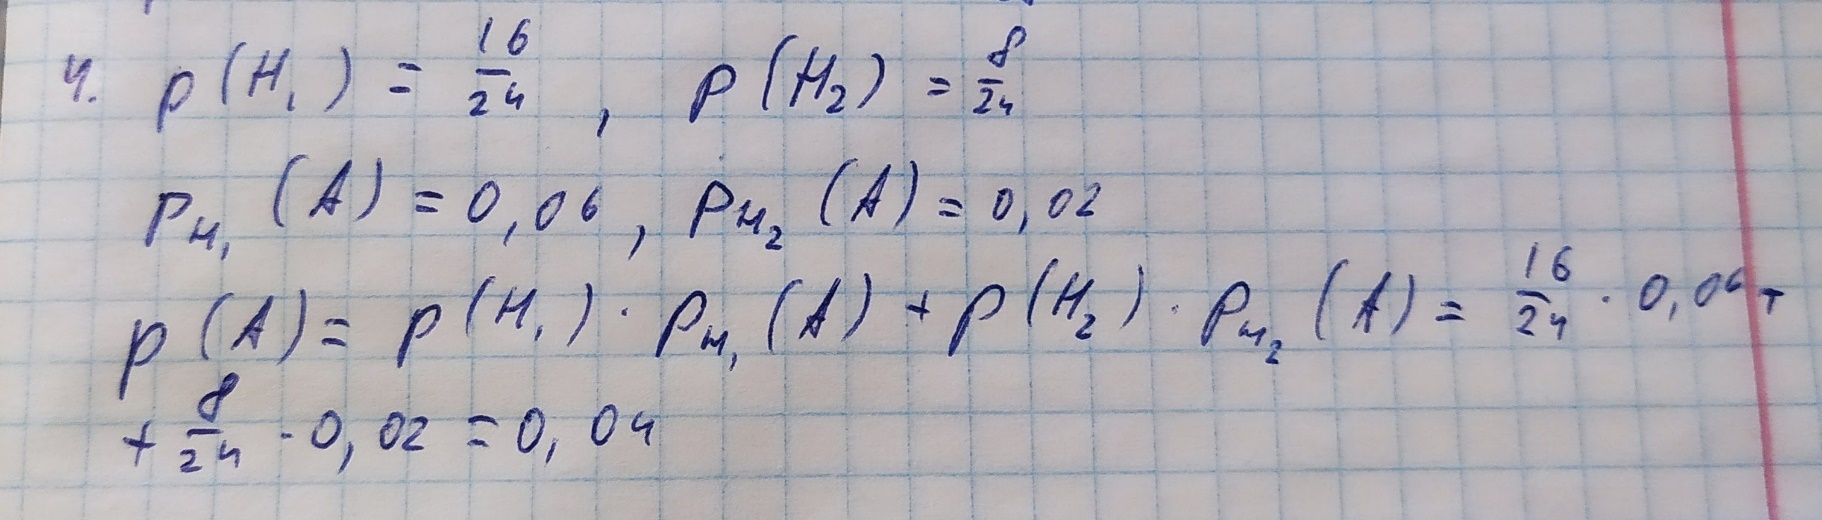 4. p(H₁) = 16/24, p(H₂) = 8/24
p_H₁(A) = 0,06, p_H₂(A) = 0,02
p(A) = p(H₁) · p_H₁(A) + p(H₂) · p_H₂(A) = 16/24 · 0,06 +
+ 8/24 · 0,02 = 0,04